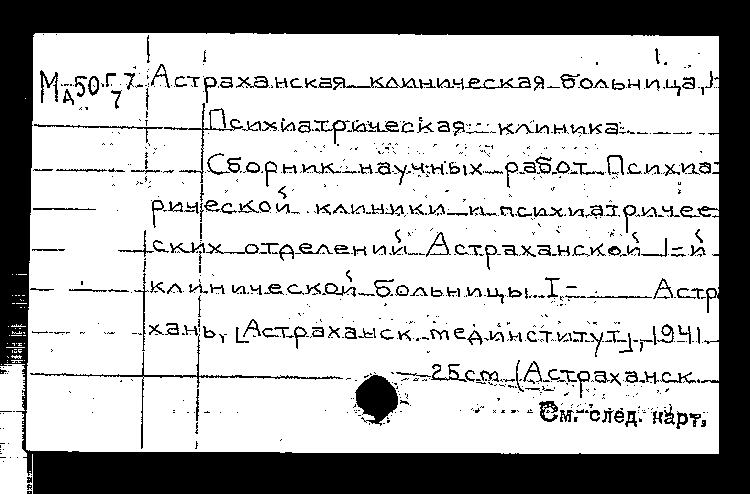 1.
МА50 Г7/7 Астраханская клиническая больница,
Психиатрическая клиника
Сборник научных работ Психиат
рической клиники и психиатриче
ских отделений Астраханской I=й
клинической больницы I- Астра
хань, [Астраханск. мединститут], 1941
25cm (Астраханск
См. след. карт.